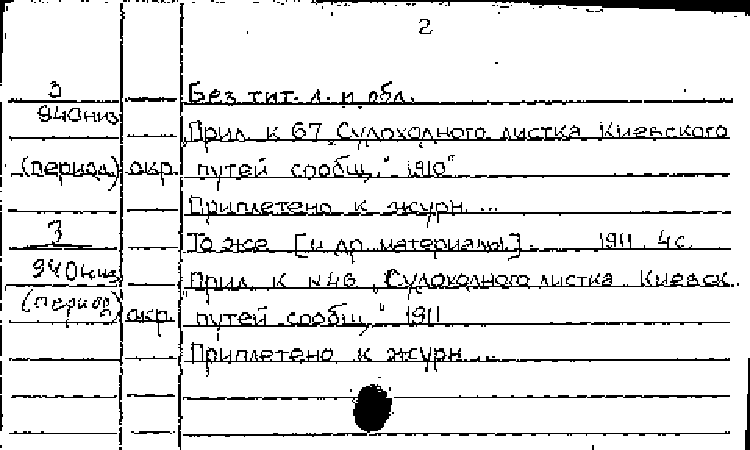 2
З Без тит. л. и обл.
940низ
Прил. к 67 „Судоходного листка Киевского
(период) окр. путей сообщ." 1910"
Приплетено к журн. ...
З То же [и др. материалы]. 1911. 4 с.
940низ Прил. к №46 „Судоходного листка Киевск.
(период) окр. путей сообщ." 1911
Приплетено к журн. ...